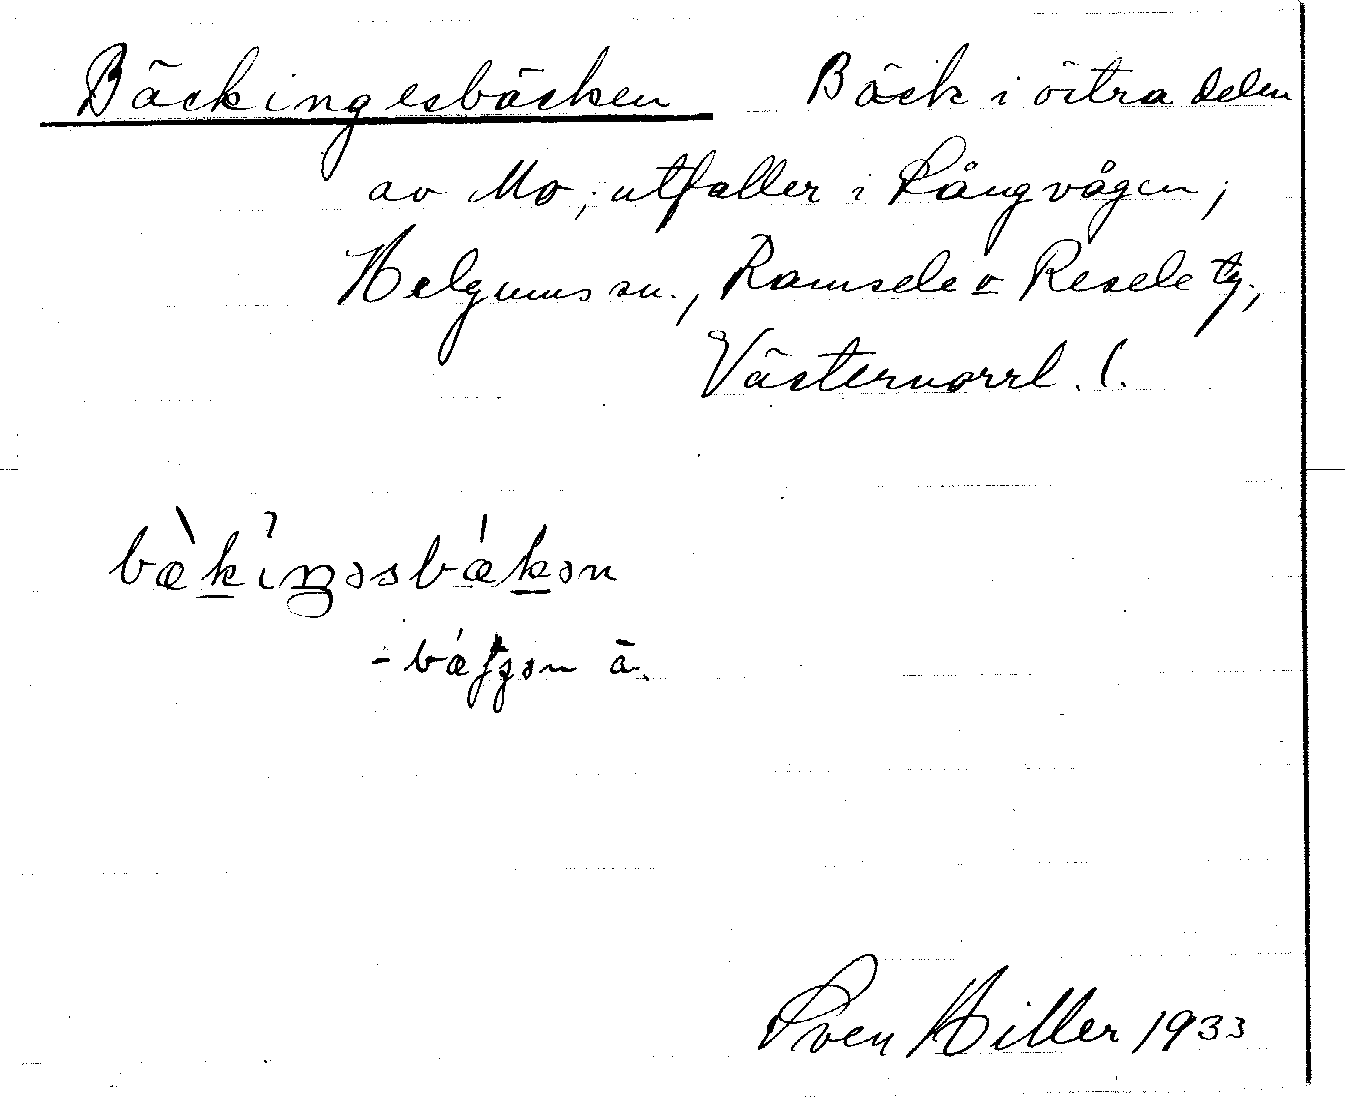 Bäckingesbäcken Bäck i östra delen
av Mo; utfaller i Långvågen,
Helgums sn., Ramsele o Resele tg.,
Västernorrl. l.
bæ̀kiŋəsbǽkən
-bǽʃʒən ä.
Sven Hiller 1933